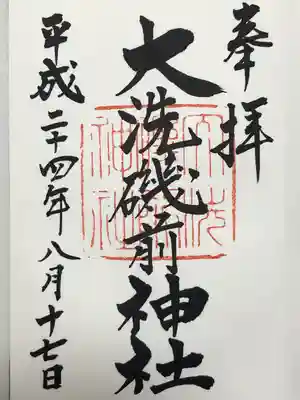 奉拝
大洗磯前神社
平成二十四年八月十七日